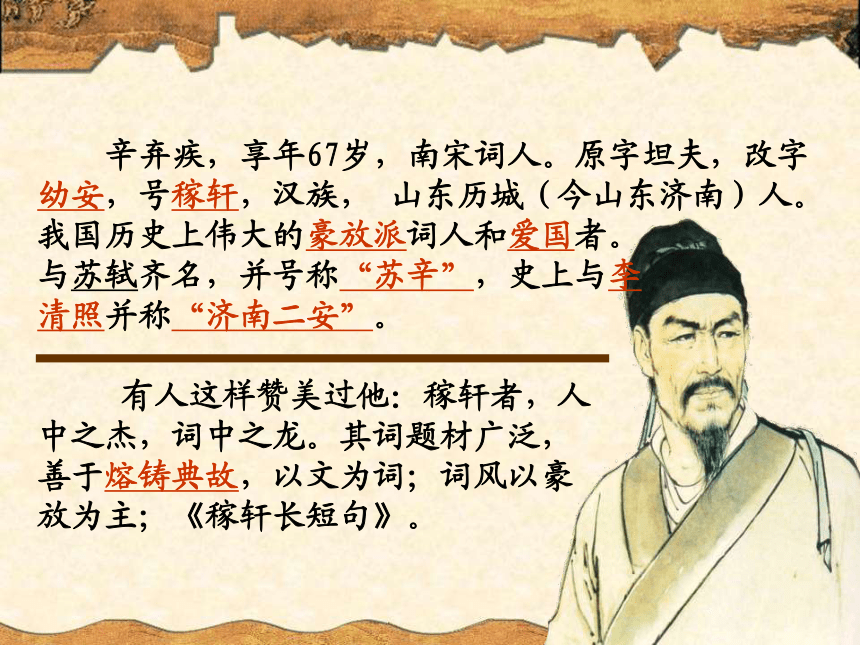 辛弃疾，享年67岁，南宋词人。原字坦夫，改字
幼安，号稼轩，汉族， 山东历城（今山东济南）人。
我国历史上伟大的豪放派词人和爱国者。
与苏轼齐名，并号称“苏辛”，史上与李
清照并称“济南二安”。
有人这样赞美过他：稼轩者，人
中之杰，词中之龙。其词题材广泛，
善于熔铸典故，以文为词；词风以豪
放为主；《稼轩长短句》。